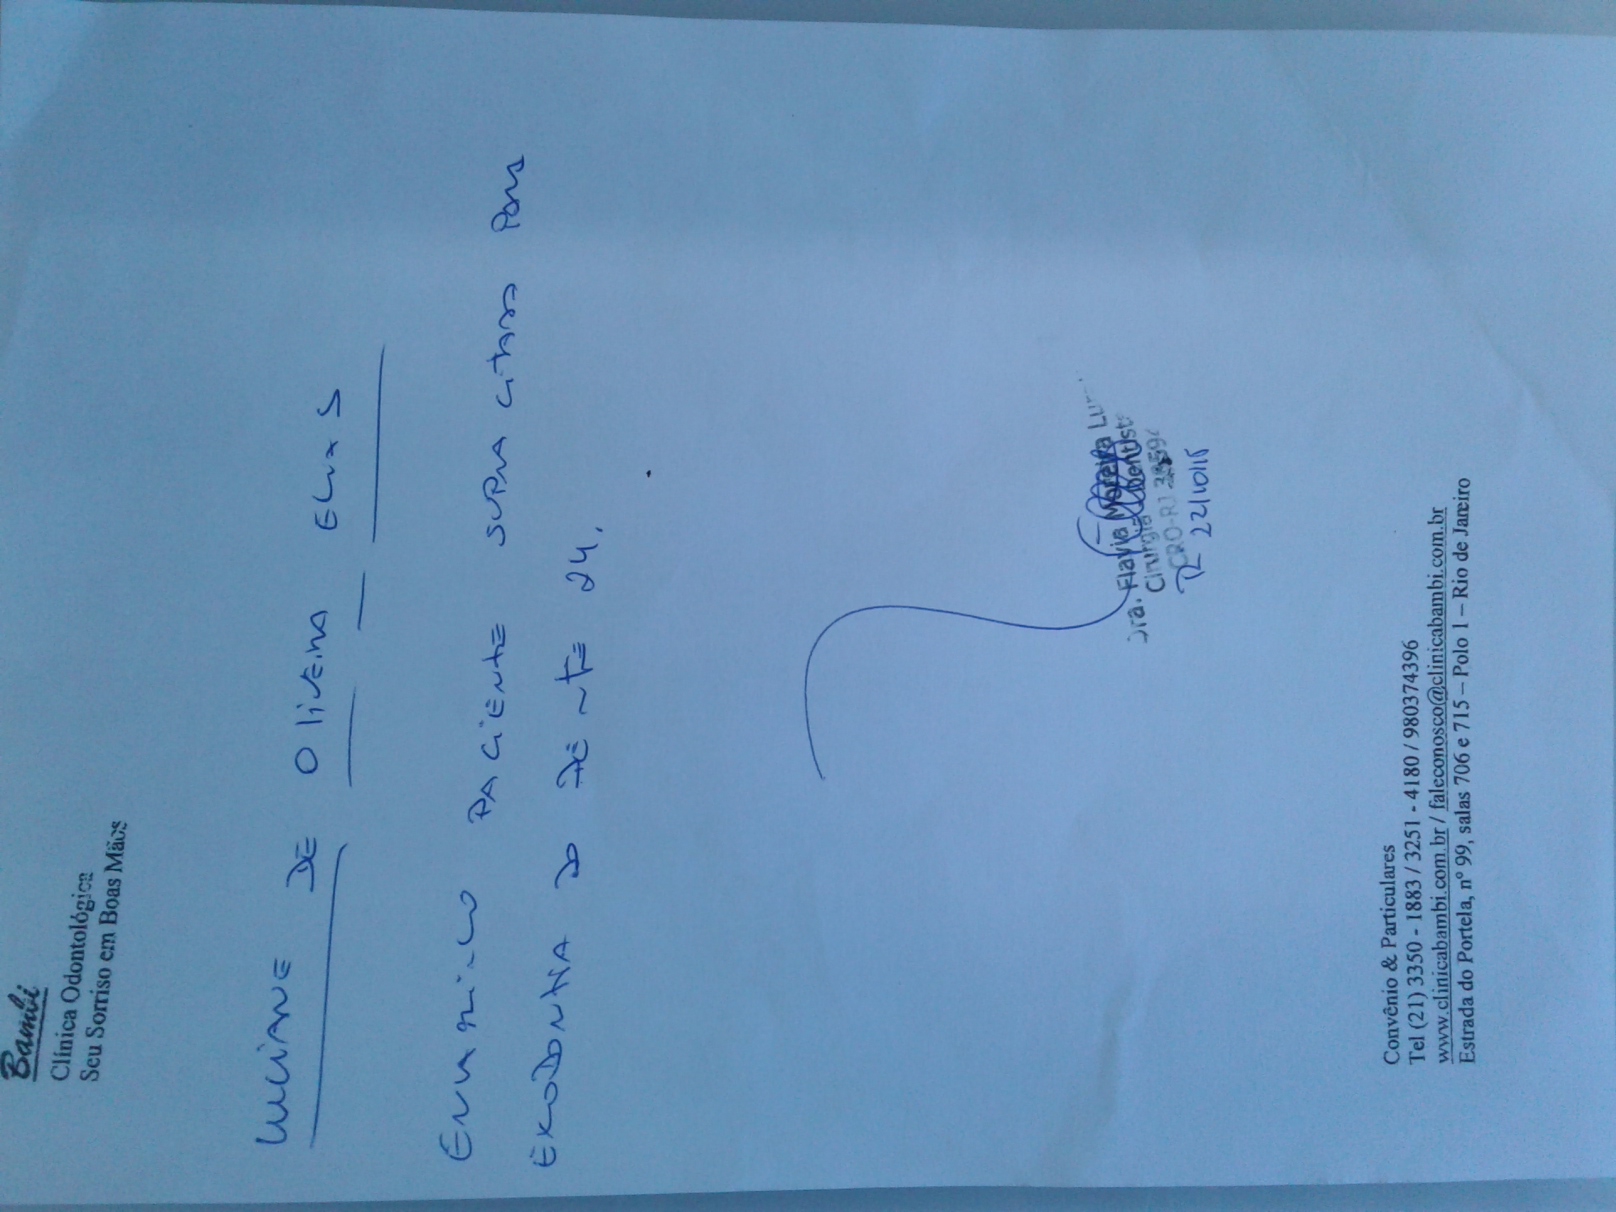 Bambi
Clínica Odontológica
Seu Sorriso em Boas Mãos
LUCIANE DE OLIVEIRA ELIAS
PACIENTE SUPRA CITADO PARA
EXODONTIA DO DENTE 24.
Dra. Flavia Moreira
Cirurgiã Dentista
CRO-RJ
Convênio & Particulares
Tel (21) 3350 - 1883 / 3251 - 4180 / 980374396
www.clinicabambi.com.br / faleconosco@clinicabambi.com.br
Estrada do Portela, nº 99, salas 706 e 715 – Polo 1 – Rio de Janeiro